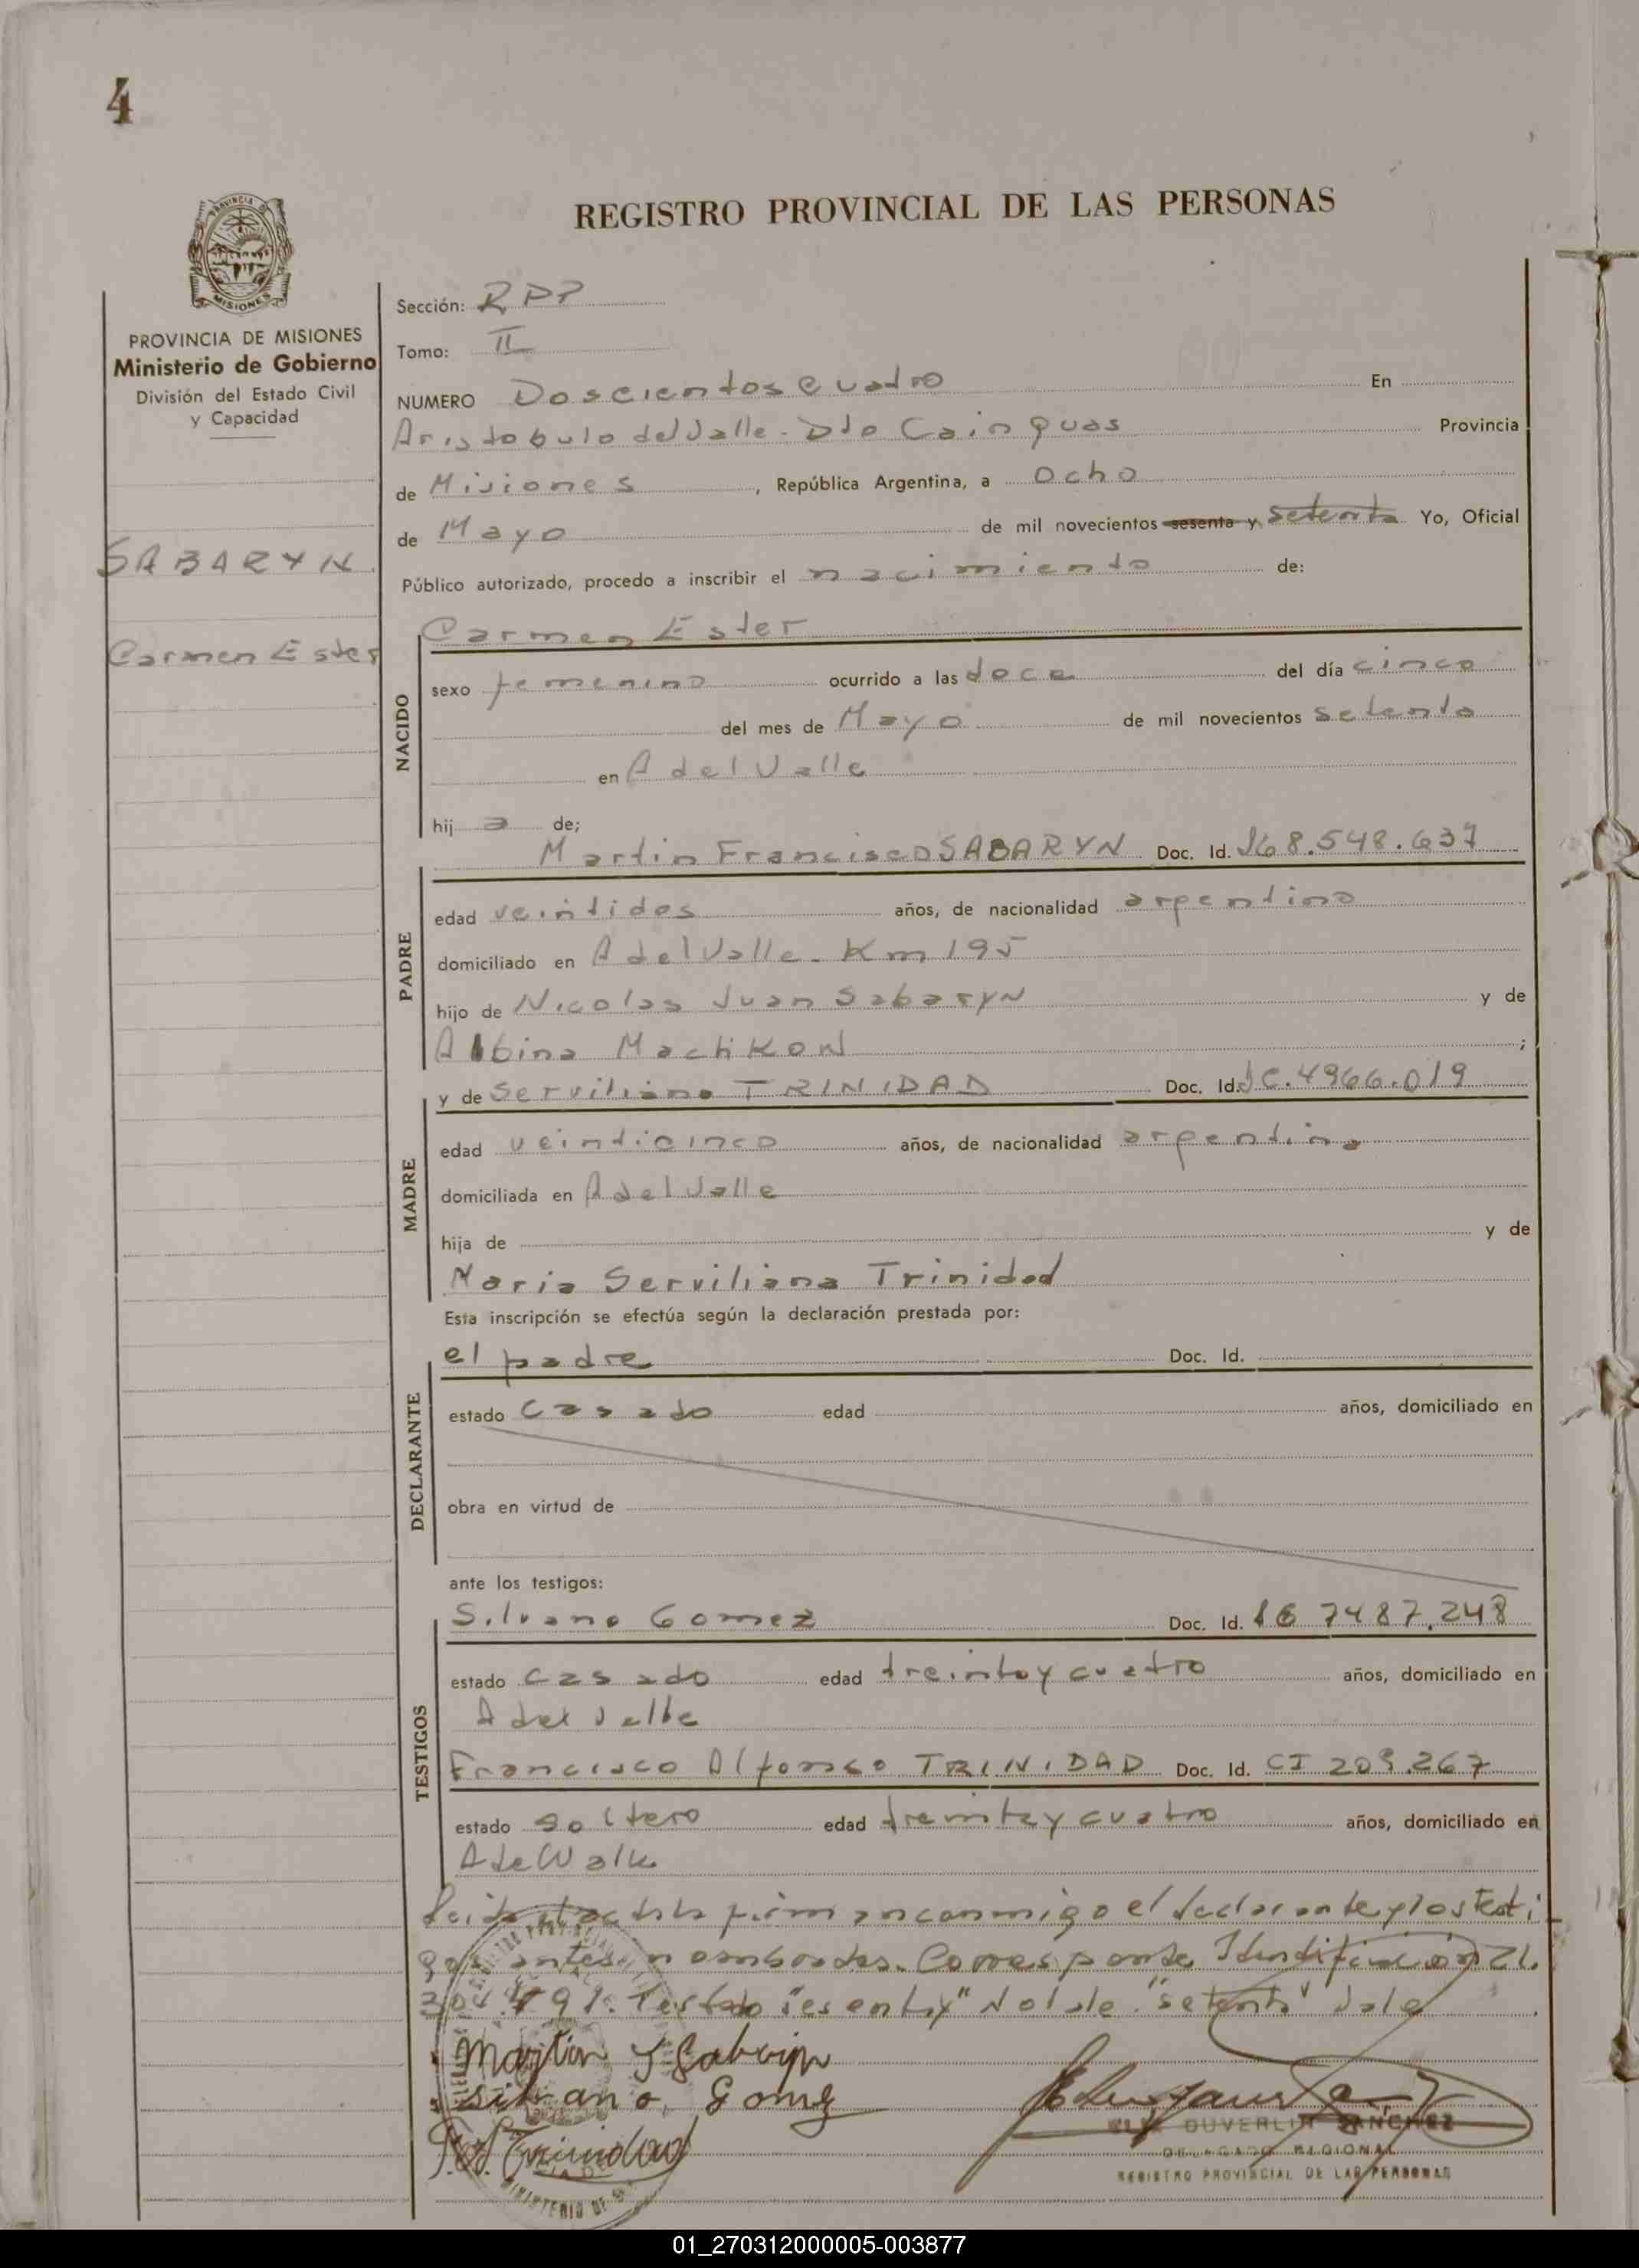 4
REGISTRO PROVINCIAL DE LAS PERSONAS
PROVINCIA DE MISIONES
Ministerio de Gobierno
División del Estado Civil
y Capacidad
SABARYN
Carmen Ester
Sección: RPP
Tomo: II
NUMERO Doscientos cuatro En
Aristobulo del Valle - Dto Cainguas Provincia
de Misiones, República Argentina, a Ocho
de Mayo de mil novecientos sesenta y setenta Yo, Oficial
Público autorizado, procedo a inscribir el nacimiento de:
NACIDO
Carmen Ester
sexo femenino ocurrido a las doce del día cinco
del mes de Mayo de mil novecientos setenta
en A del Valle
hij a de;
PADRE
Martin Francisco SABARYN Doc. Id. 8.548.637
edad veintidos años, de nacionalidad argentino
domiciliado en A del Valle - Km 195
hijo de Nicolas Juan Sabaryn y de
Albina Machkon ;
MADRE
y de Serviliana TRINIDAD Doc. Id. 4966.019
edad veinticinco años, de nacionalidad argentina
domiciliada en A del Valle
hija de y de
Maria Serviliana Trinidad
Esta inscripción se efectúa según la declaración prestada por:
DECLARANTE
el padre Doc. Id.
estado casado edad años, domiciliado en
obra en virtud de
ante los testigos:
TESTIGOS
Silvano Gomez Doc. Id. 7487.248
estado casado edad treinta y cuatro años, domiciliado en
A del Valle
Francisco Alfonso TRINIDAD Doc. Id. CI 209.267
estado soltero edad treinta y cuatro años, domiciliado en
A del Valle
Leida el acta la firman conmigo el declarante y los testi
gos antes nombrados. Corresponde Identificación 21.
Testado "sesenta y" No Vale. "setenta" Vale
Martin F Sabaryn
Silvano Gomez
Trinidad
DUVERLIN SANCHEZ
DELEGADO REGIONAL
REGISTRO PROVINCIAL DE LAS PERSONAS
01_270312000005-003877